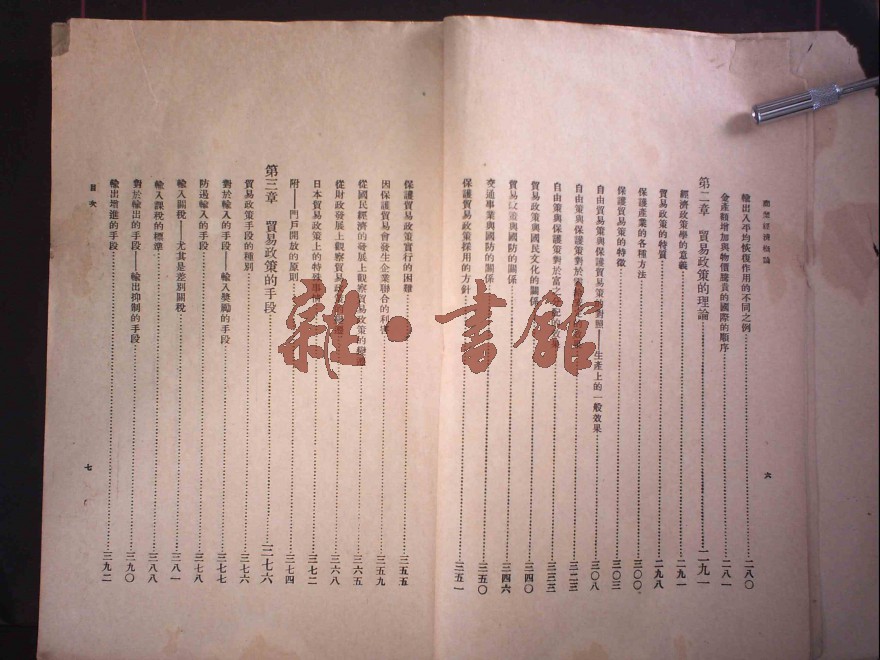 商業經濟概論
六
輸出入平均恢復作用的不同之例……二八〇
金產額增加與物價騰貴的國際的順序……二八一
第二章　貿易政策的理論……二九一
經濟政策學的意義……二九一
貿易政策的特質……二九八
保護產業的各種方法……三〇〇
保護貿易的特徵……三〇三
自由貿易策與保護貿易策 對照——生產上的一般效果……三〇八
自由策與保護策對於……三二三
自由策與保護策對於富 分配的……三三三
貿易政策與國民文化的關係……三四〇
貿易 與國防的關係……三四六
交通事業與國防的關係……三五〇
保護貿易政策採用的方針……三五一
保護貿易政策實行的困難……三五五
因保護貿易會發生企業聯合的利害……三五九
從國民經濟的發展上觀察貿易政策的變遷……三六五
從財政發展上觀察貿易政……三六八
日本貿易政策上的特殊事……三七二
附——門戶開放的原則……三七四
第三章　貿易政策的手段……三七六
貿易政策手段的種別……三七六
對於輸入的手段——輸入獎勵的手段……三七七
防遏輸入的手段……三七八
輸入關稅——尤其是差別關稅……三八一
輸入課稅的標準……三八八
對於輸出的手段——輸出抑制的手段……三九〇
輸出增進的手段……三九二
目次
七
雜·書館